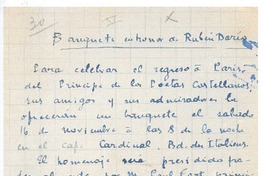 30 V X
Banquete en honor de Rubén Darío
Para celebrar el regreso a Paris
del Principe de los Poetas Castellanos,
sus amigos y sus admiradores le
ofrecerán un banquete el sabado
16 de noviembre a las 8 de la noche
en el café Cardinal, Bd. des Italiens.
El homenaje será presidido
por M. Paul Fort,